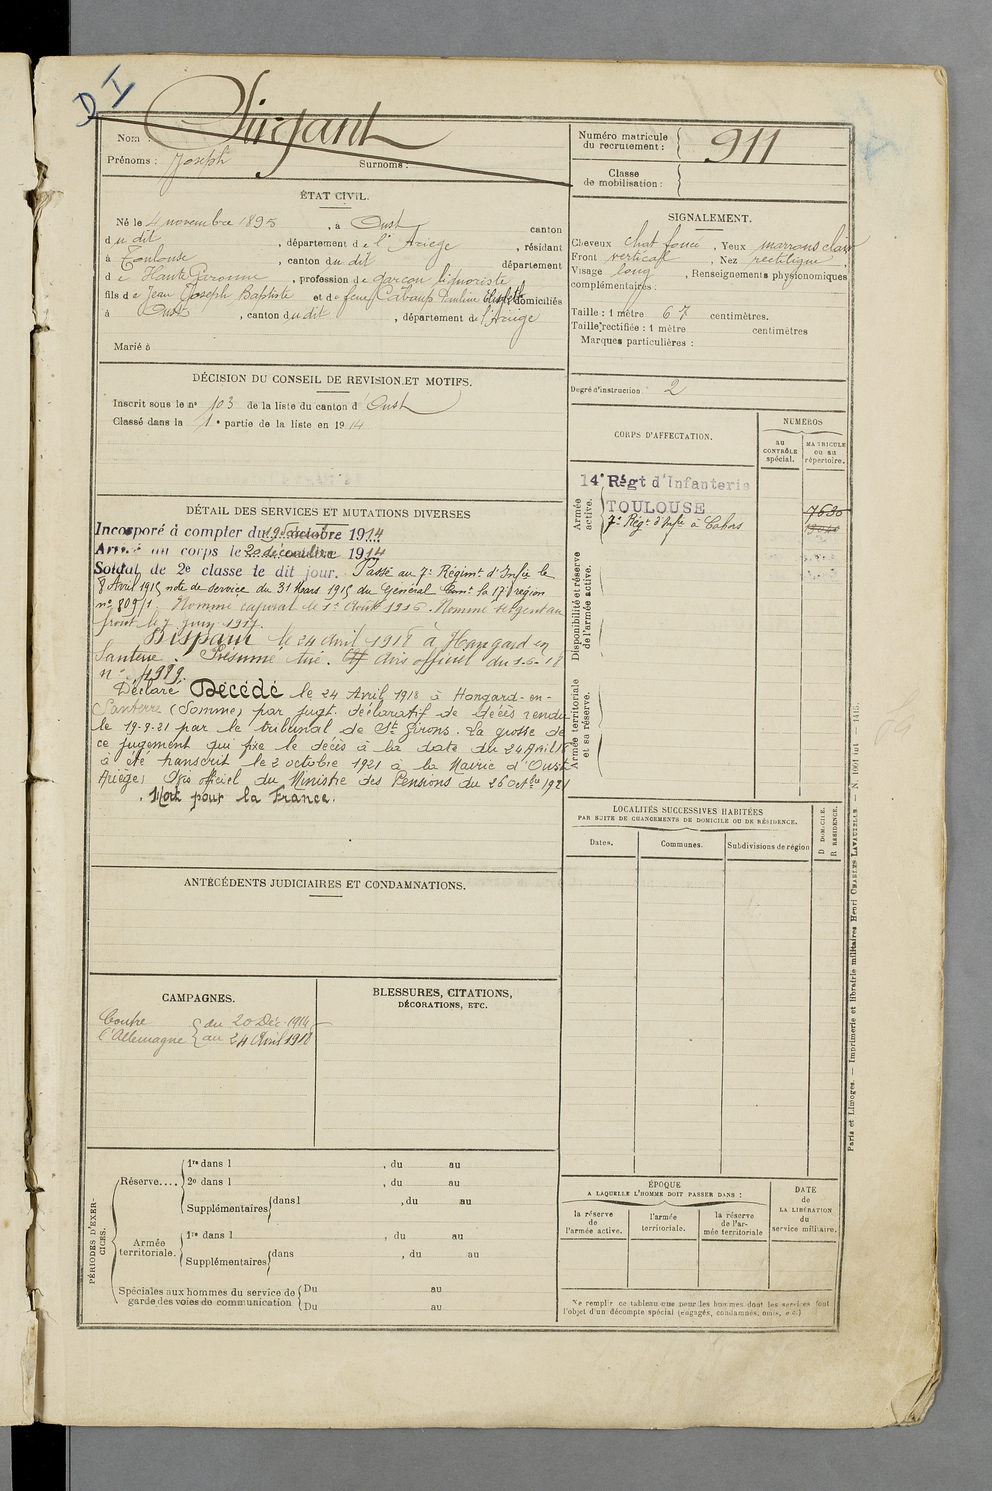 D I
Nom : Sirjant
Prénoms : Joseph Surnoms :
Numéro matricule du recrutement : 911
Classe de mobilisation :
ÉTAT CIVIL.
Né le 4 novembre 1895, à Oust canton
dudit, département de l'Ariège, résidant
à Toulouse, canton dudit département
de Haute Garonne, profession de garçon liquoriste
fils de Jean Joseph Baptiste et de feue Cabaup Pauline domiciliés
à Oust, canton dudit, département de l'Ariège
Marié à
SIGNALEMENT.
Cheveux chat foncé, Yeux marrons clair
Front vertical, Nez rectiligne
Visage long, Renseignements physionomiques
complémentaires :
Taille : 1 mètre 67 centimètres.
Taille rectifiée : 1 mètre centimètres
Marques particulières :
Degré d'instruction 2
DÉCISION DU CONSEIL DE REVISION ET MOTIFS.
Inscrit sous le n° 103 de la liste du canton d'Oust
Classé dans la 1e partie de la liste en 1914
DÉTAIL DES SERVICES ET MUTATIONS DIVERSES
Incorporé à compter du 19 octobre 1914
Arrivé au corps le 20 décembre 1914
Soldat de 2e classe le dit jour. Passé au 7e Régimt d'Infie le
8 Avril 1915 note de service du 31 Mars 1915 du Général Comt la 17e région
n° 809/1 Nommé caporal le 1er Août 1916. Nommé sergent au
front le 7 juin 1917.
Disparu le 24 Avril 1918 à Hangard en
Santerre. Présumé tué. avis officiel du 1-6-18
n° 4989.
Déclaré Décédé le 24 Avril 1918 à Hangard-en-
Santerre (Somme) par jugt. déclaratif de décès rendu
le 19-9-21 par le tribunal de St Girons. La grosse de
ce jugement qui fixe le décès à la date du 24 Avril 18
a été transcrit le 2 octobre 1921 à la Mairie d'Oust
Ariège) Avis officiel du Ministre des Pensions du 26 Octbre 1921
Mort pour la France.
CORPS D'AFFECTATION.
NUMÉROS
au CONTRÔLE spécial.
MATRICULE ou au répertoire.
Armée active.
14e Régt d'Infanterie
TOULOUSE
7e Régt d'Infie à Cahors
7680
Disponibilité et réserve de l'armée active.
Armée territoriale et sa réserve.
LOCALITÉS SUCCESSIVES HABITÉES
PAR SUITE DE CHANGEMENTS DE DOMICILE OU DE RÉSIDENCE.
Dates.
Communes.
Subdivisions de région
D DOMICILE.
R RÉSIDENCE.
ANTÉCÉDENTS JUDICIAIRES ET CONDAMNATIONS.
CAMPAGNES.
Contre du 20 Déc 1914
l'Allemagne au 24 Avril 1918
BLESSURES, CITATIONS,
DÉCORATIONS, ETC.
PÉRIODES D'EXERCICES.
Réserve....
1re dans l , du au
2e dans l , du au
Supplémentaires dans l , du au
Armée territoriale.
1re dans l , du au
Supplémentaires dans , du au
Spéciales aux hommes du service de Du au
garde des voies de communication Du au
ÉPOQUE
A LAQUELLE L'HOMME DOIT PASSER DANS :
la réserve de l'armée active.
l'armée territoriale.
la réserve de l'armée territoriale
DATE
de
LA LIBÉRATION
du
service militaire.
Ne remplir ce tableau que pour les hommes dont les services font
l'objet d'un décompte spécial (engagés, condamnés, omis, etc.)
Paris et Limoges. — Imprimerie et librairie militaires Henri CHARLES-LAVAUZELLE.